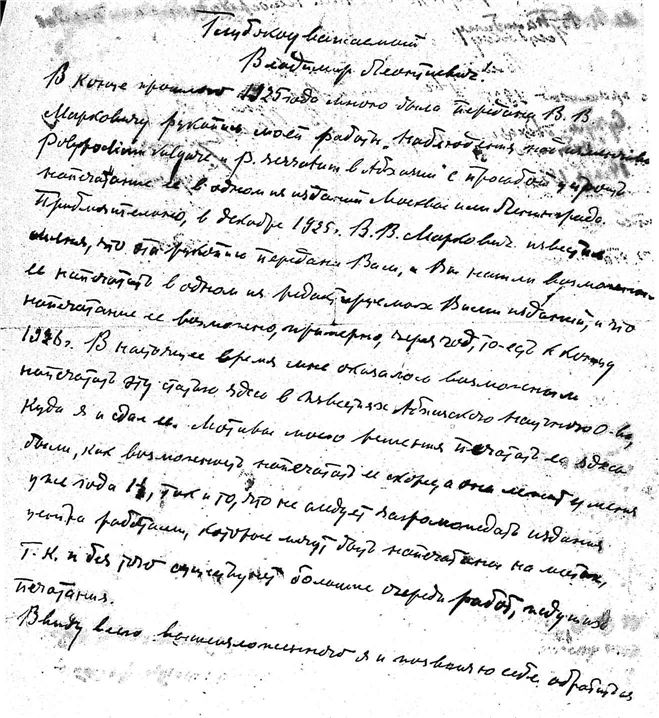 Глубокоуважаемый
Владимир Леонтиевич!
В конце прошлого 1925 года мною была передана В. В.
Марковичу рукопись моей работы „Наблюдения над
Polypodium vulgare и P. serratum в Абхазии" с просьбой
напечатание ее в одном из изданий Москвы или Ленинграда.
Приблизительно, в декабре 1925 г. В. В. Маркович известил
меня, что эта рукопись передана Вам, и Вы нашли возможным
ее напечатать в одном из редактируемых Вами изданий, и что
напечатание ее возможно, примерно, через год, то-есть к концу
1926 г. В настоящее время мне оказалось возможным
напечатать эту статью здесь в Известиях Абхазского Научного О-ва,
куда я и сдал ее. Мотивы моего решения печатать ее здесь
были, как возможность напечатать ее скорее, а она лежит у меня
уже года 1½, так и то, что не следует загромождать издания
центра работами, которые могут быть напечатаны на местах,
т. к. и без того существуют большие очереди работ, ждущих
печатания.
Ввиду всего вышеизложенного я и позволяю себе обратиться